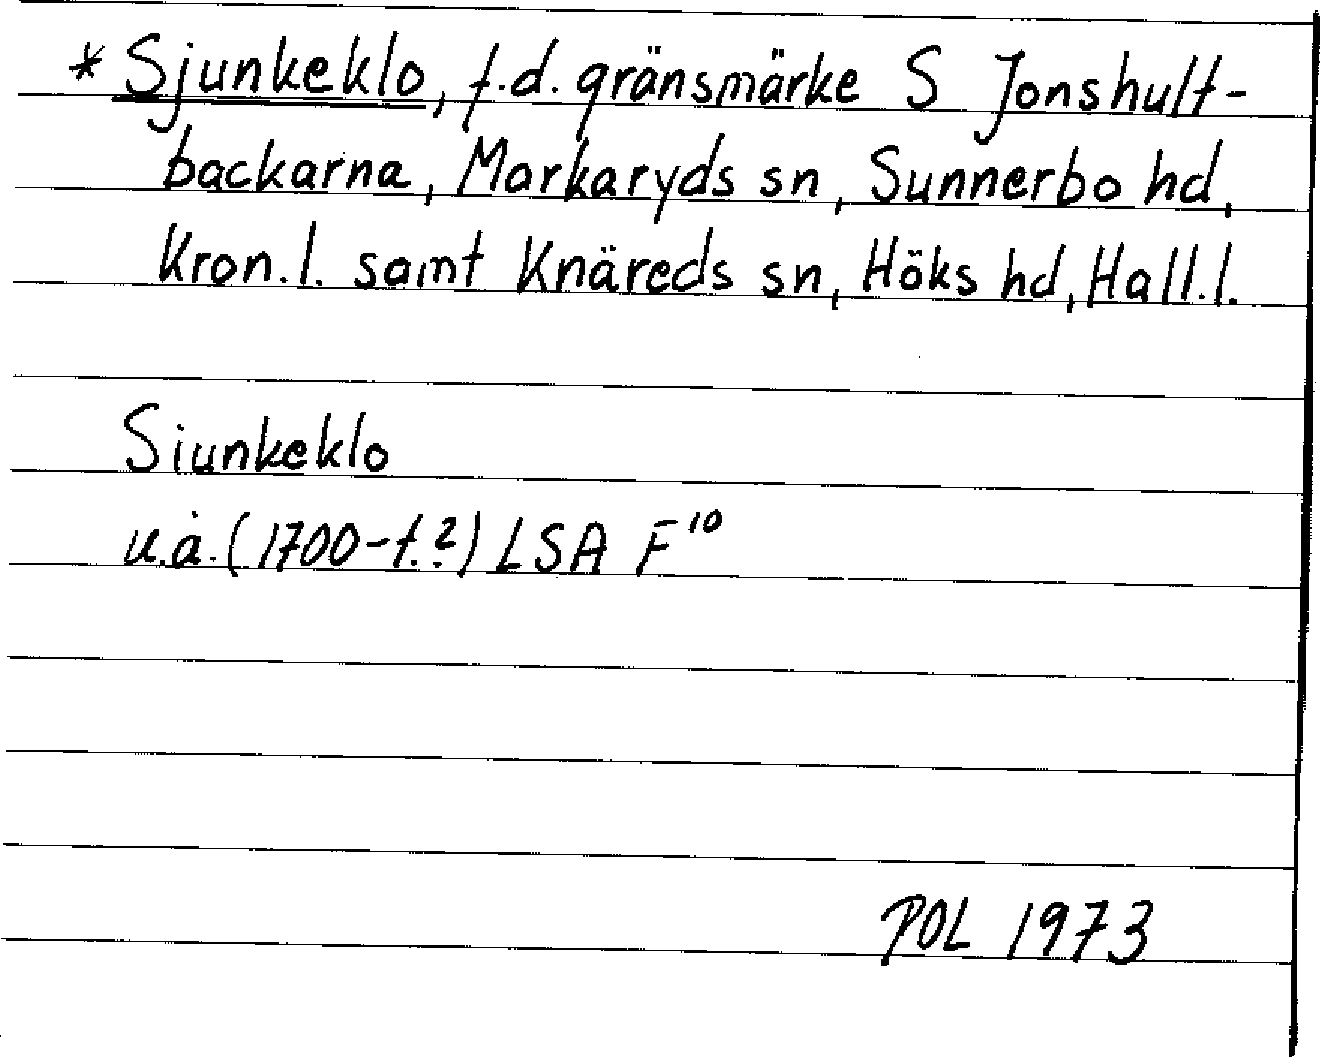 * Sjunkeklo, f.d. gränsmärke S Jonshult-
backarna, Markaryds sn, Sunnerbo hd,
Kron.l. samt Knäreds sn, Höks hd, Hall.l.
Siunkeklo
u.å. (1700-t.?) LSA F¹⁰
POL 1973